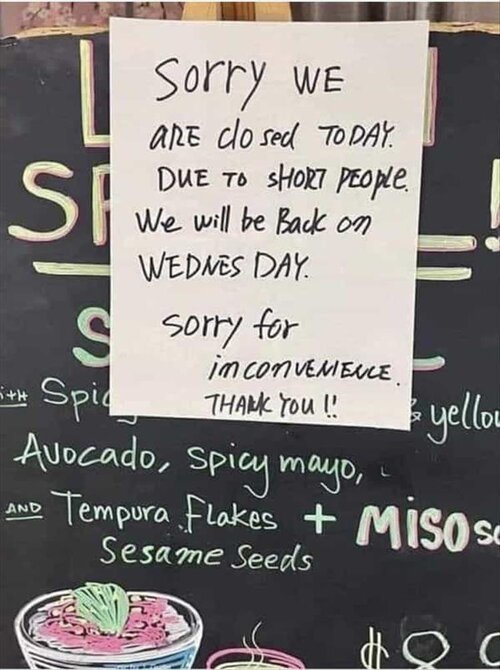 Sorry WE
ARE closed TODAY.
DUE TO SHORT PEOPLE.
We will be Back on
WEDNESDAY.
Sorry for
inconVENIENCE.
THANK YOU !!
Avocado, spicy mayo,
AND Tempura Flakes + MISO
Sesame Seeds